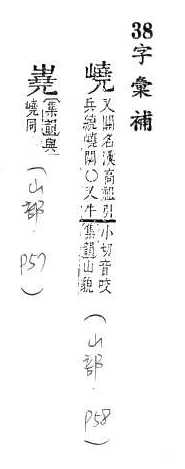 38字彙補
嶢 又關名漢高祖引
兵繞嶢關〇又牛小切音咬
集韻山貌
(山部. P58)
嶤 集韻與
嶢同
(山部. P57)